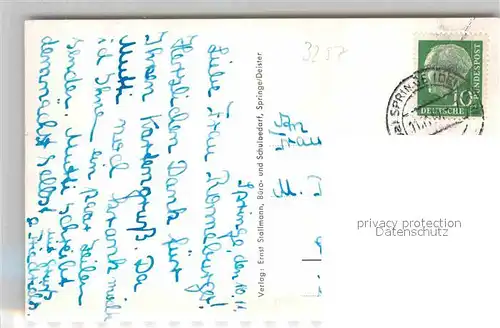 Springe, den 10.11.
Liebe Frau Rommelburg!
Herzlichen Dank für
Ihren Kartengruß. Da
Mutti noch krank
ich Ihnen ein paar Zeilen
senden. Mutti schreibt
demnächst selbst
Verlag: Ernst Stallmann, Büro- und Schulbedarf, Springe/Deister
An
Frau
M.
3257
SPRINGE (DEISTER)
10
DEUTSCHE BUNDESPOST
privacy protection
Datenschutz